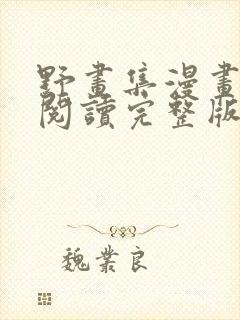 野畫集漫畫
閱讀完整版
魏業良